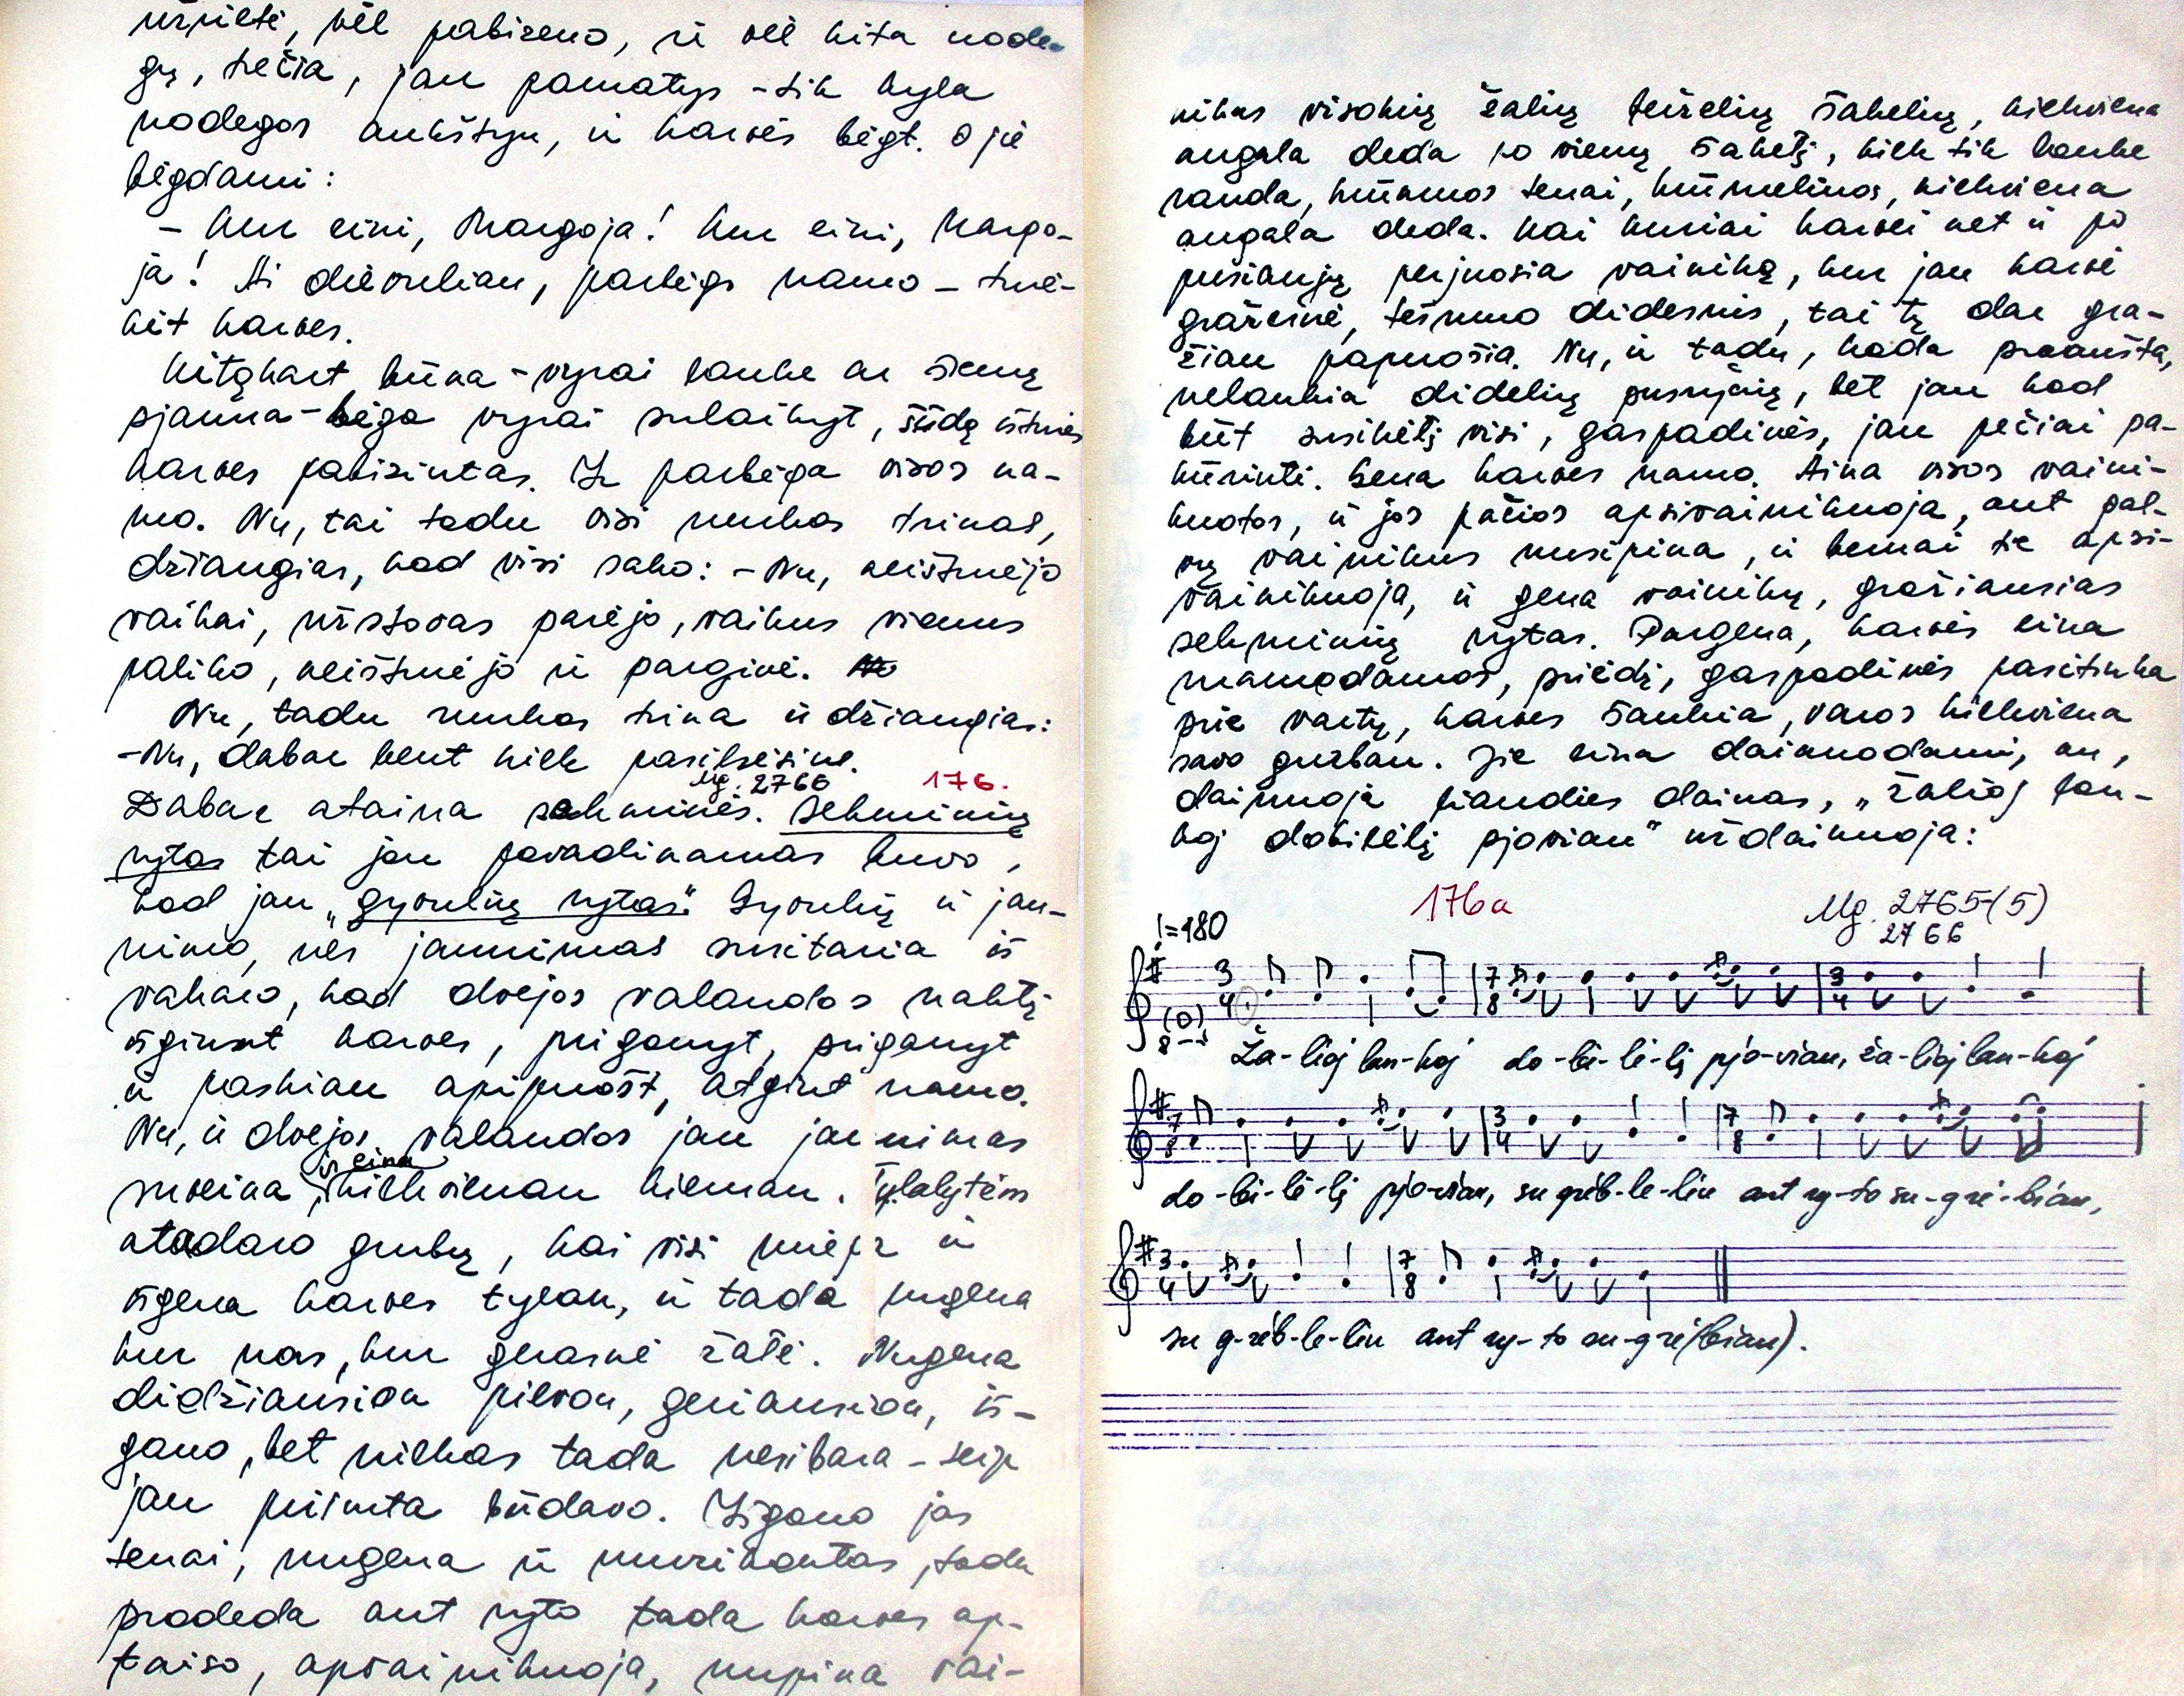 užpilti, vėl pabizeno, ir vėl kita uode-
gų, trečia, jau pamatys - tik kyla
uodegos aukštyn, ir karvės bėgt. O jie
bėgdami:
- Kur eini, Margoja! Kur eini, Margo-
ja! Ai dievuliau, parbėgs namo - tvė-
kit karves.
Kitąkart būna - vyrai lauke ar šieną
pjauna - bėga vyrai sulaikyt, šūdą ištinės
karves pabizintas. Ir parbėga visos na-
mo. Nu, tai tadu visi runkas trinas,
džiaugias, kad visi sako: - Nu, neištvėjo
vaikai, užstovas parėjo, vaikus vienus
paliko, neištvėjo ir parginė.
Nu, tadu runkas trina ir džiaugias:
- Nu, dabar bent kiek pasilsėsime.
Mg. 2766 176.
Dabar ataina sekminės. Sekminių
rytas tai jau pavadinamas buvo,
kad jau „gyvulių rytas". Gyvulių ir jau-
nimo, nes jaunimas susitaria iš
vakaro, kad dvejos valandos naktį
išginst karves, priganyt, priganyt
ir paskiau apipuošt, atgint namo.
Nu, ir dvejos valandos jau jaunimas
ir eina
sueina kiekvienan kieman. Tylalytėm
atadaro gurbų, kai visi miega ir
išgena karves tylau, ir tada nugena
kur nors, kur gerasnė žalė. Nugena
didžiausion pievon, geriausion, iš-
gano, bet niekas tada nesibara - teip
jau priimta būdavo. Išgano jas
tenai, nugena ir muzikantas, tadu
pradeda ant ryto tada karves ap-
taiso, apvainikuoja, nupina vai-
nikus visokių žalių beželių šakelių, kiekviena
augala deda po vieną šakelį, kiek tik lauke
randa, kiūnmos tenai, kiūnmelinos, kiekviena
augala deda. Kai kuriai karvei net ir po
pusiaują perjuosia vainiką, kur jau karvė
gražesnė, tešmuo didesnis, tai tų dar gra-
žiau papuošia. Nu, ir tadu, kada praaušta,
nelaukia didelių pusryčių, bet jau kad
būt susikėlį visi, gaspadinės, jau pečiai pa-
kūrinti. Gena karves namo. Aina visos vaini-
kuotos, ir jos pačios apsivainikuoja, ant gal-
vų vainikus nusipina, ir bernai te apsi-
vainikuoja, ir gena vainikų, gražiausias
sekminių rytas. Pargena, karvės eina
mamodamos, priėdį, gaspadinės pasitinka
prie vartų, karves šaukia, varos kiekviena
savo gurban. Jie eina dainuodami, an,
dainuoja šiandies dainas, „Žalioj lan-
koj dobilėlį pjovian" uždainuoja:
176a Mg. 2765-(5)
2766
=180
Ža-lioj lan-koj do-bi-lė-lį pjo-vian, ža-lioj lan-koj
do-bi-lė-lį pjo-vian, su grėb-le-liu ant ry-to su-grė-bian,
su g-rėb-le-liu ant ry-to su-grė(bian).